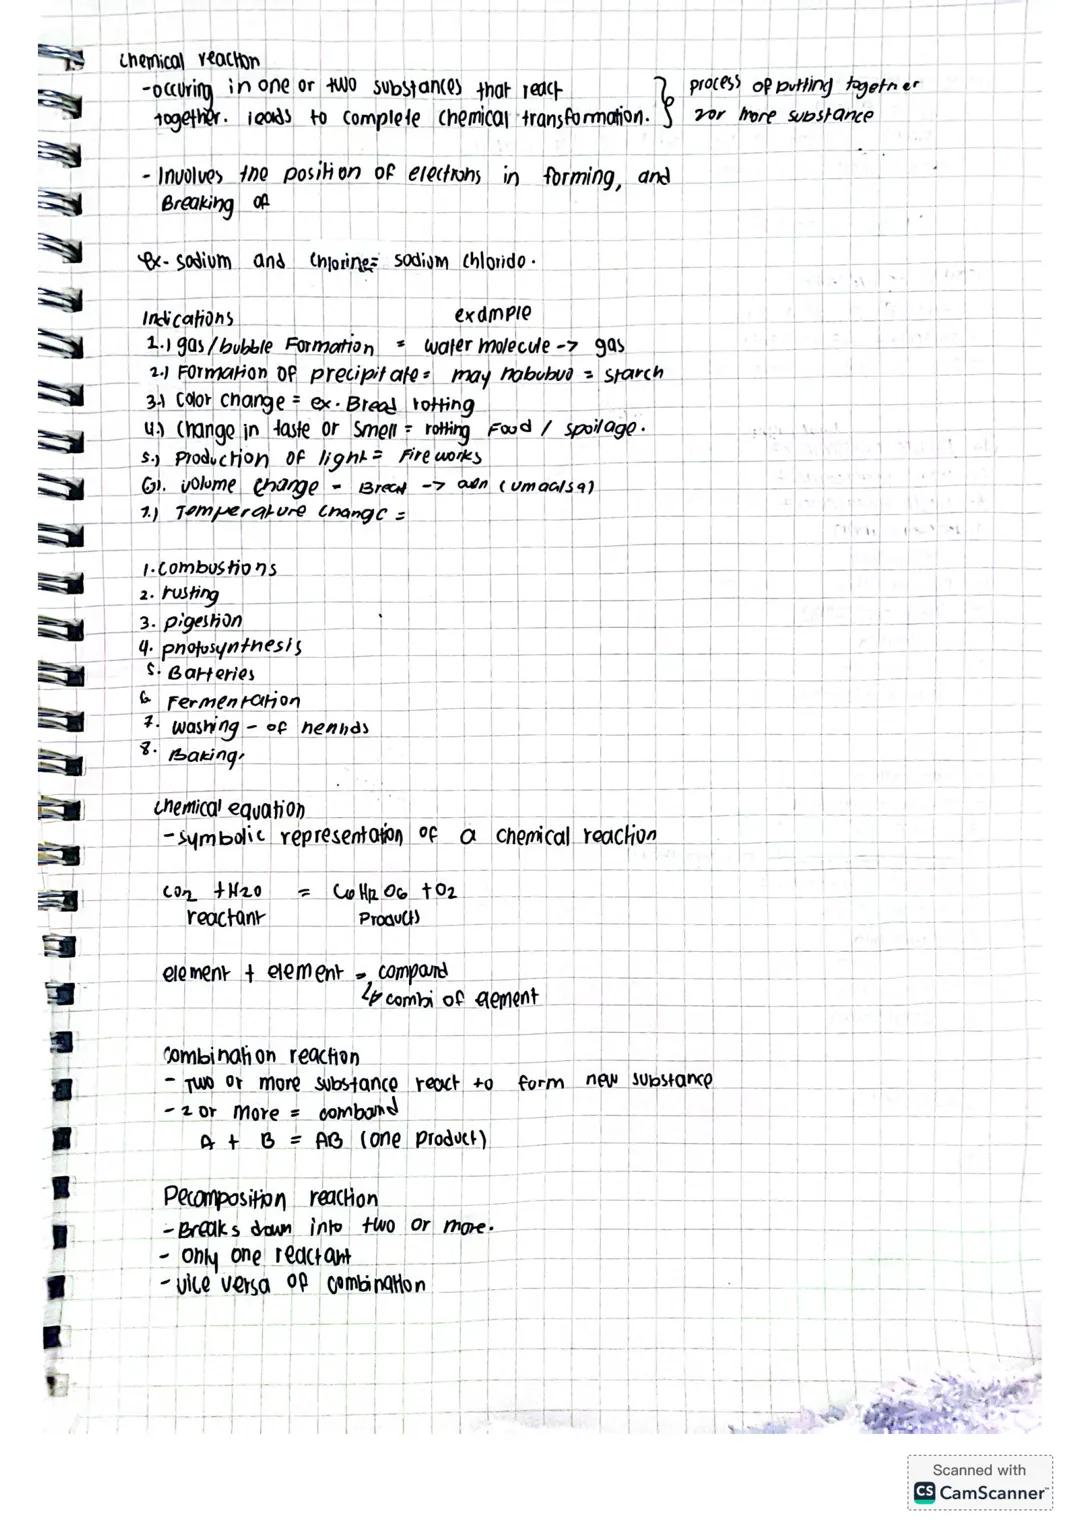 chemical reaction
-occuring in one or two substances that react
together. leads to complete chemical transformation. } process of putting together
2 or more substance
- Involves the position of electrons in forming, and
Breaking of
ex- sodium and chlorine= sodium chlorido.
Indications example
1.) gas/bubble Formation = water molecule -> gas
2.) Formation of precipitate= may nabubuo = starch
3.) Color change = ex. Bread rotting
4.) Change in taste or Smell = rotting Food / spoilage.
5.) Production of light = Fireworks
6). volume change - Bread -> (umaalsa)
7.) Temperature Change =
1. Combustions
2. rusting
3. Digestion
4. photosynthesis
5. Batteries
6 Fermentation
7. washing - of
8. Baking.
chemical equation
-symbolic representation of a chemical reaction
CO2 + H2O = C6H12O6 + O2
reactant Products
element + element = compound
↳ combi of element
combination reaction
- Two or more substance react to form new substance
- 2 or more = combound
A + B = AB (one product)
Decomposition reaction
- Breaks down into two or more.
- Only one reactant
- vice versa of combination
Scanned with
CS CamScanner